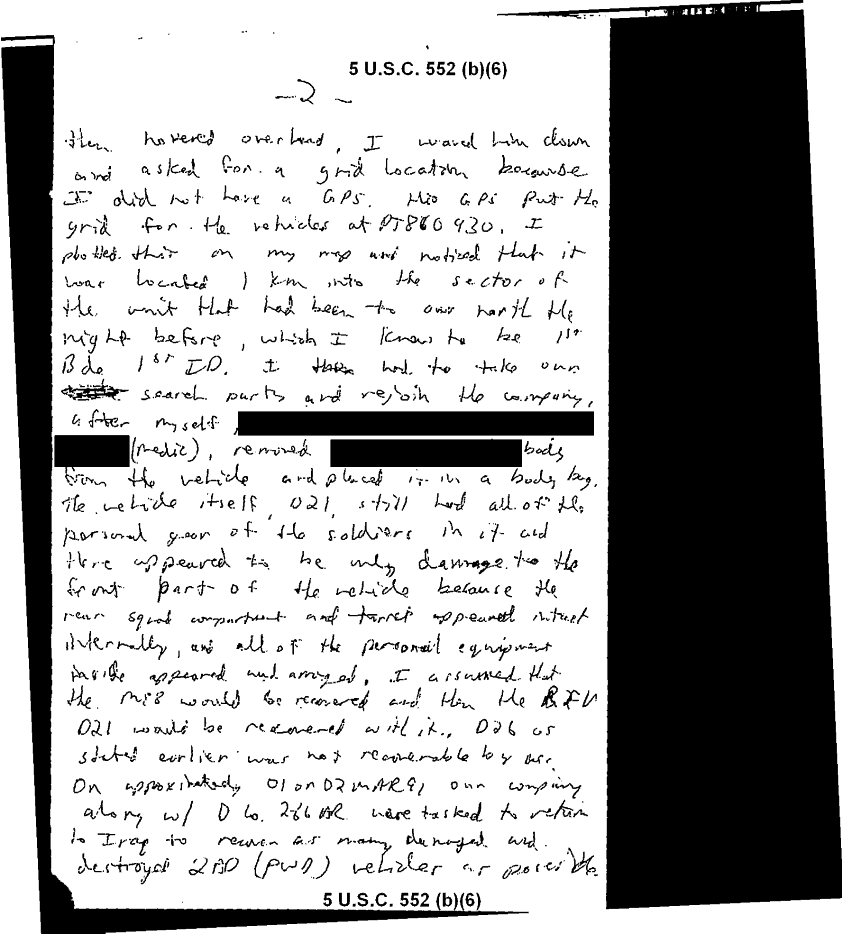 5 U.S.C. 552 (b)(6)
-2-
then hovered overhead, I waved him down
and asked for a grid location because
I did not have a GPS. His GPS put the
grid for the vehicles at PT860930. I
plotted this on my map and noticed that it
was located 1 km into the sector of
the unit that had been to our north the
night before, which I know to be 1st
Bde 1st ID. I had to take our
search party and rejoin the company,
after myself,
(medic), removed body
from the vehicle and placed it in a body bag.
The vehicle itself, D21, still had all of the
personal gear of the soldiers in it and
there appeared to be only damage to the
front part of the vehicle because the
rear squad compartment and turret appeared intact
internally, and all of the personal equipment
inside appeared . I assumed that
the M88 would be recovered and then the BFV
D21 would be recovered with it. D26 as
stated earlier was not recoverable by us.
On approximately 01 or 02 MAR 91 our company
along w/ D Co. 2/66 AR were tasked to return
to Iraq to recover as many damaged and
destroyed 2AD (FWD) vehicles as possible.
5 U.S.C. 552 (b)(6)